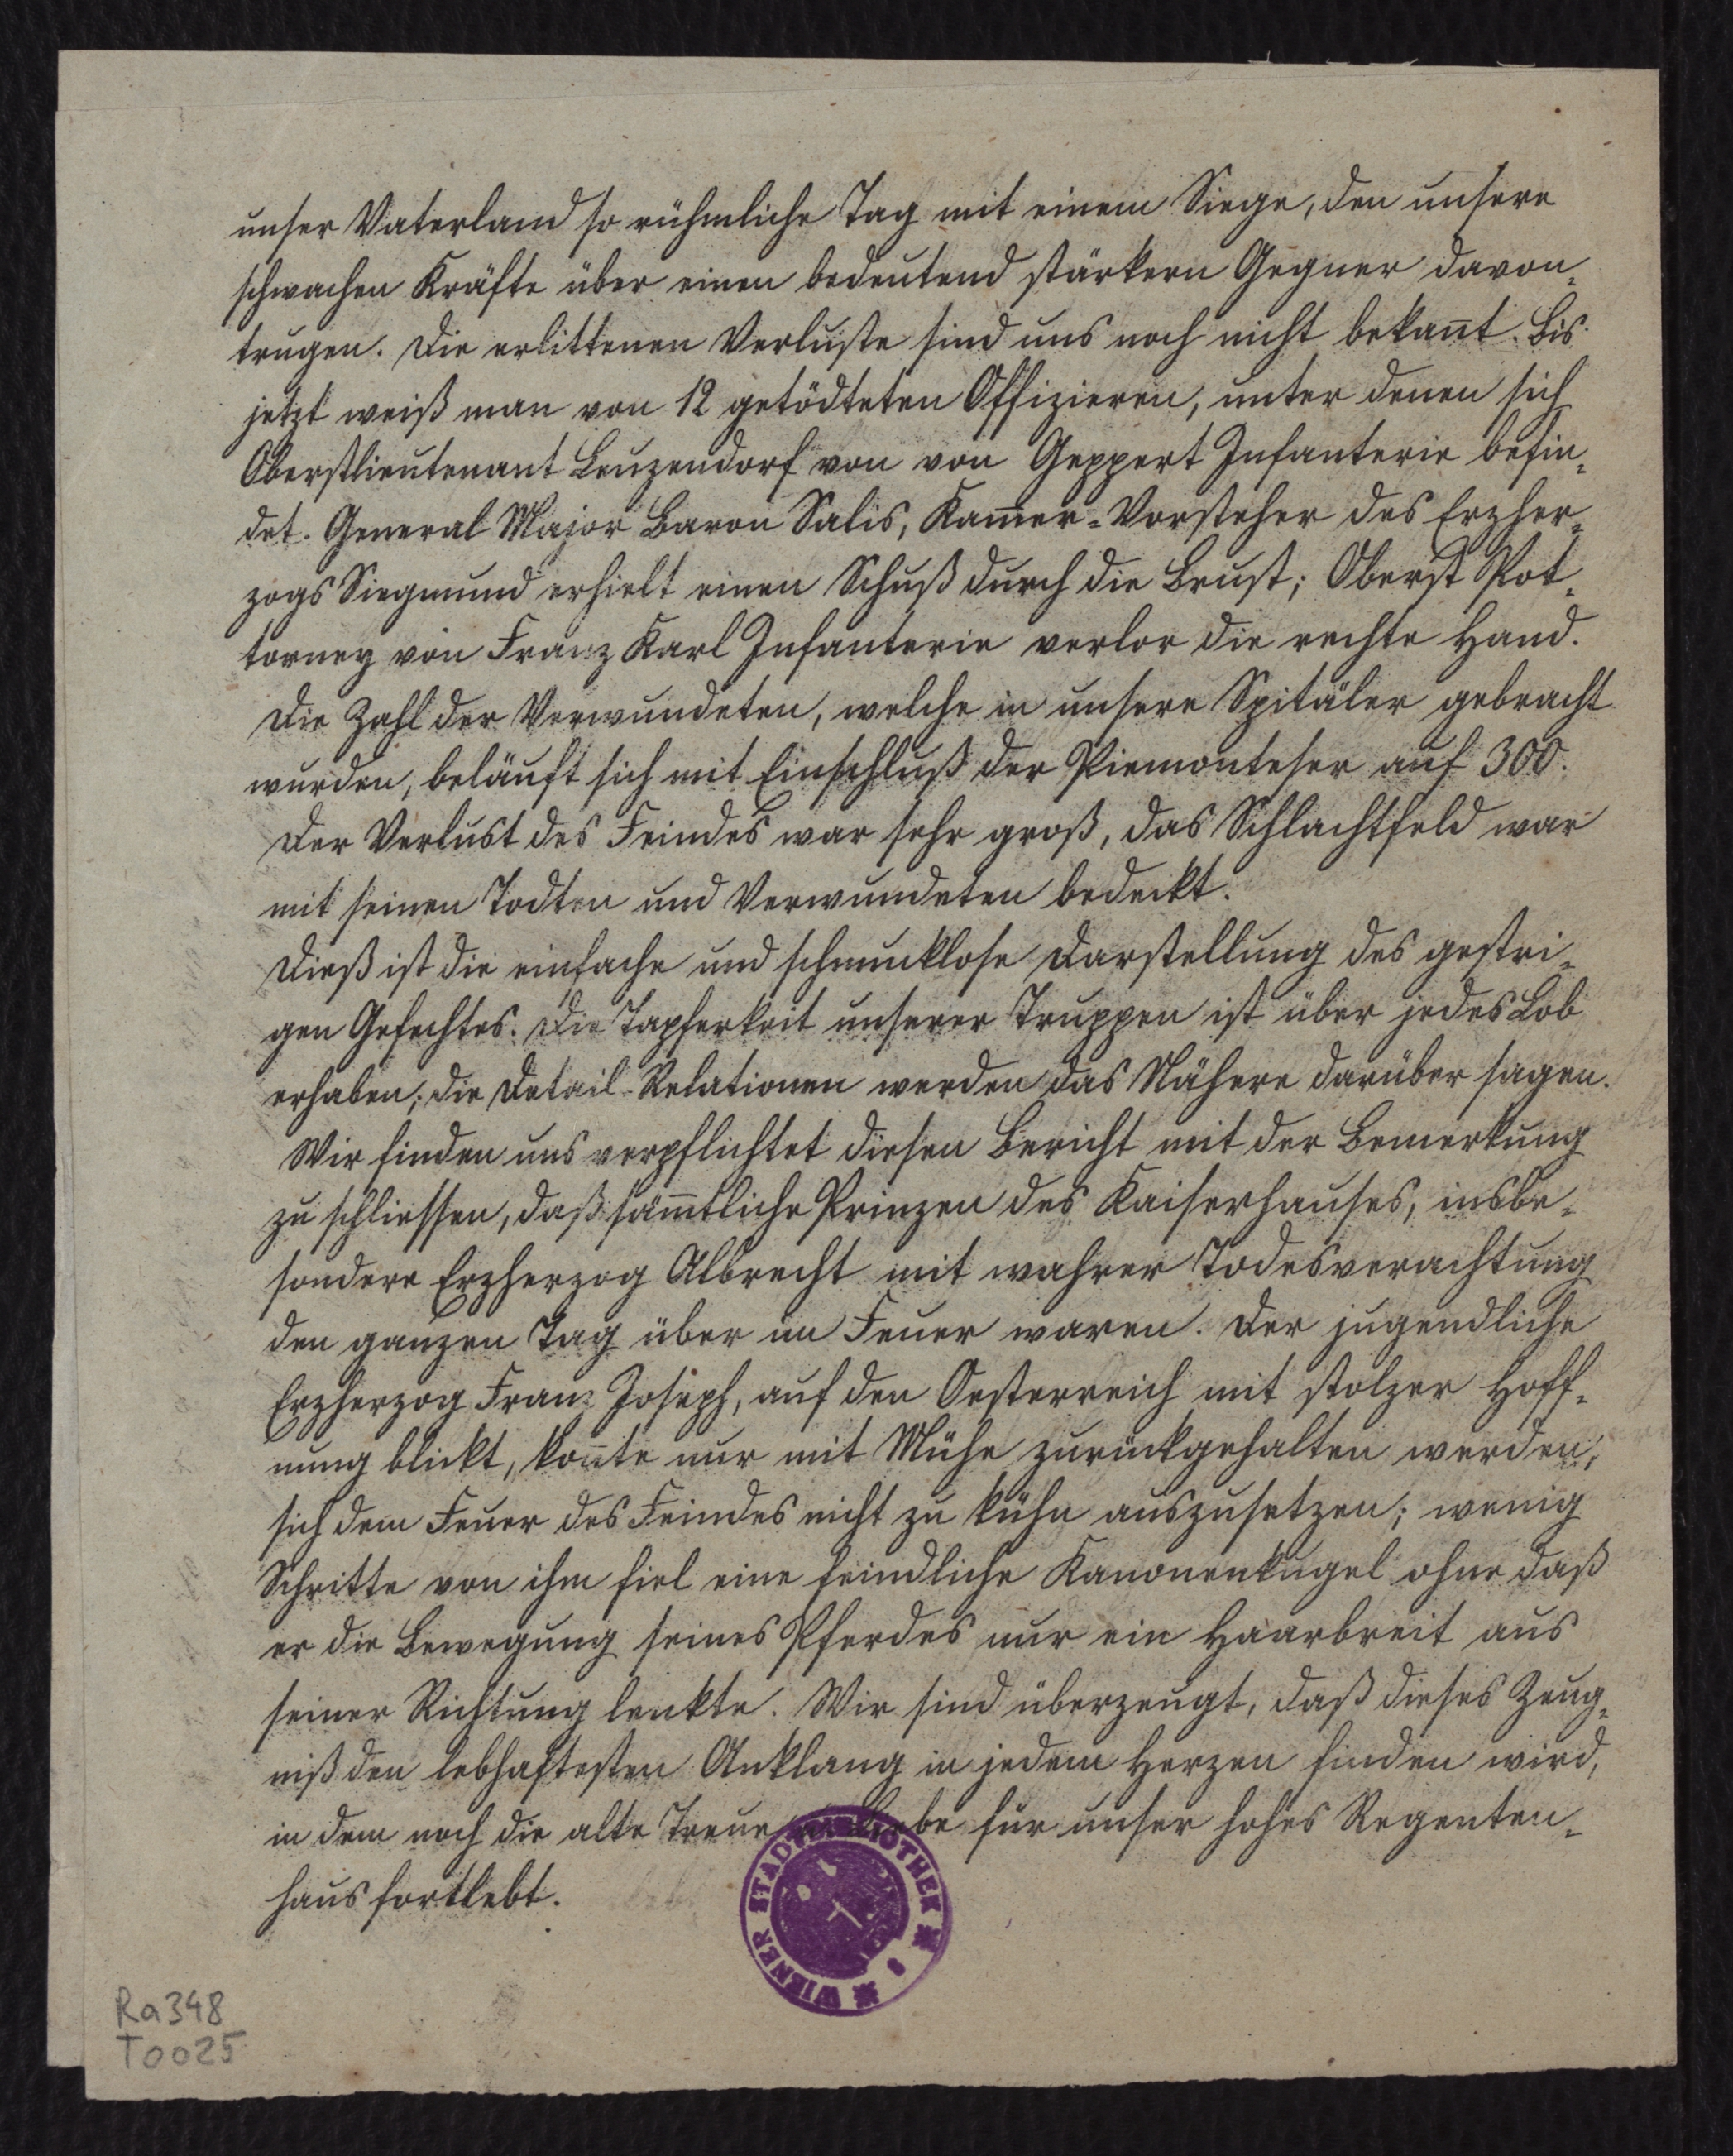 unser Vaterland so rühmliche Tag mit einem Siege, den unsere
schwachen Kräfte über einen bedeutend stärkern Gegner davon-
trugen. Die erlittenen Verluste sind uns noch nicht bekañt. Bis
jetzt weiß man von 12 getödteten Offizieren, unter denen sich
Oberstlieutenant Leuzendorf von von Geppert Infanterie befin-
det. General Major Baron Salis, Kam̄er-Vorsteher des Erzher-
zogs Siegmund erhielt einen Schuß durch die Brust; Oberst Pot-
torney von Franz Karl Infanterie verlor die rechte Hand.
Die Zahl der Verwundeten, welche in unsere Spitäler gebracht
wurden, beläuft sich mit Einschluß der Piemonteser auf 300.
Der Verlust des Feindes war sehr groß, das Schlachtfeld war
mit seinen Todten und Verwundeten bedeckt.
Dieß ist die einfache und schmucklose Darstellung des gestri-
gen Gefechtes. Die Tapferkeit unserer Truppen ist über jedes Lob
erhaben; die Detail-Relationen werden das Nähere darüber sagen.
Wir finden uns verpflichtet diesen Bericht mit der Bemerkung
zu schliessen, daß säm̄tliche Prinzen des Kaiserhauses, insbe-
sondere Erzherzog Albrecht mit wahrer Todesverachtung
den ganzen Tag über im Feuer waren. Der jugendliche
Erzherzog Franz Joseph, auf den Oesterreich mit stolzer Hoff-
nung blickt, koñte nur mit Mühe zurückgehalten werden,
sich dem Feuer des Feindes nicht zu kühn auszusetzen; wenig
Schritte von ihm fiel eine feindliche Kanonenkugel ohne daß
er die Bewegung seines Pferdes nur ein Haarbreit aus
seiner Richtung lenkte. Wir sind überzeugt, daß dieses Zeug-
niß den lebhaftesten Anklang in jedem Herzen finden wird,
in dem noch die alte Treue u. Liebe für unser hohes Regenten-
haus fortlebt.
WIENER STADTBIBLIOTHEK
Ra348
T0025